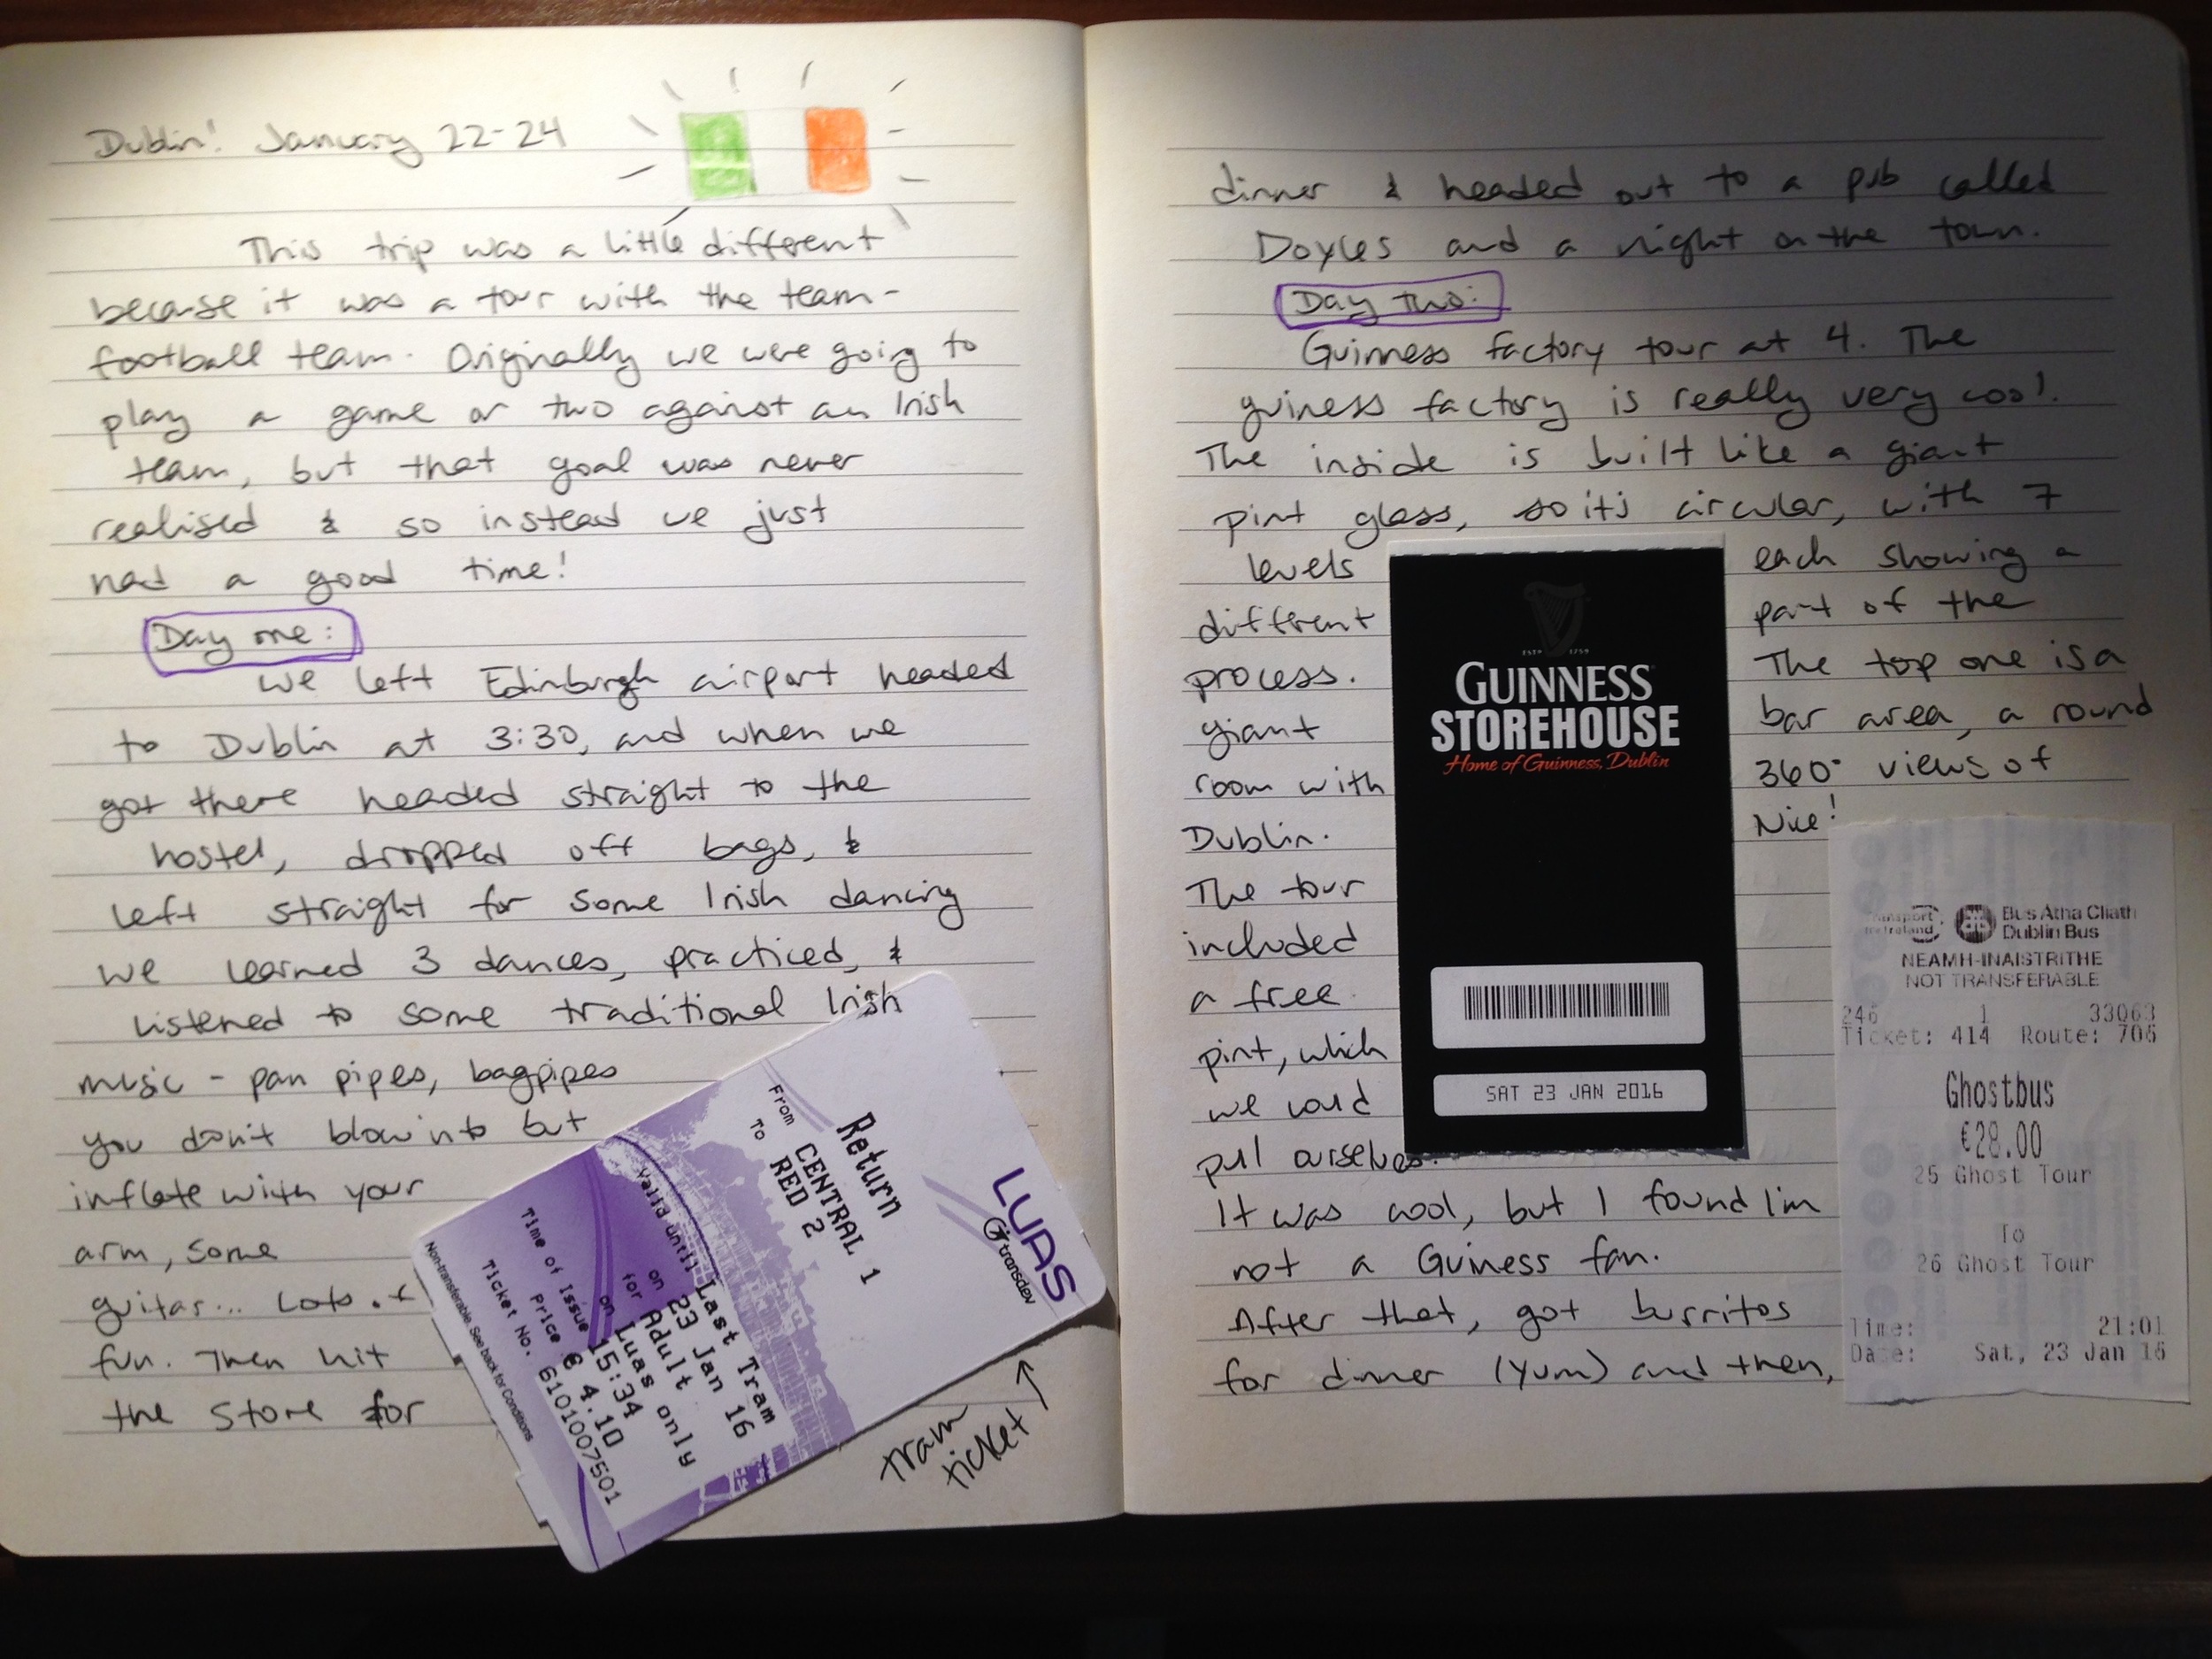 Dublin! January 22-24
This trip was a little different
because it was a tour with the team-
football team. Originally we were going to
play a game or two against an Irish
team, but that goal was never
realised & so instead we just
had a good time!
Day one:
We left Edinburgh airport headed
to Dublin at 3:30, and when we
got there headed straight to the
hostel, dropped off bags, &
left straight for some Irish dancing
we learned 3 dances, practiced, &
listened to some traditional Irish
music - pan pipes, bagpipes
you don't blow into but
inflate with your
arm, some
guitar... Lots of
fun. Then hit
the store for
LUAS
transdev
Return
From CENTRAL 1
To RED 2
Valid until Last Tram
on 23 Jan 16
for Adult
on Luas only
Time of Issue 15:34
Price € 4.10
Ticket No. 6101007501
Non-transferable. See back for Conditions
tram
ticket
dinner & headed out to a pub called
Doyles and a night on the town.
Day two:
Guinness factory tour at 4. The
guiness factory is really very cool.
The inside is built like a giant
pint glass, so its circular, with 7
levels each showing a
different part of the
process. The top one is a
giant bar area, a round
room with 360° views of
Dublin. Nice!
The tour
included
a free
pint, which
we could
pull ourselves.
It was cool, but I found I'm
not a Guiness fan.
After that, got burritos
for dinner (yum) and then,
ESTD 1759
GUINNESS
STOREHOUSE
Home of Guinness, Dublin
SAT 23 JAN 2016
Transport for Ireland
Bus Átha Cliath
Dublin Bus
NEAMH-INAISTRITHE
NOT TRANSFERABLE
246 1 33063
Ticket: 414 Route: 706
Ghostbus
€28.00
25 Ghost Tour
To
26 Ghost Tour
Time: 21:01
Date: Sat, 23 Jan 16